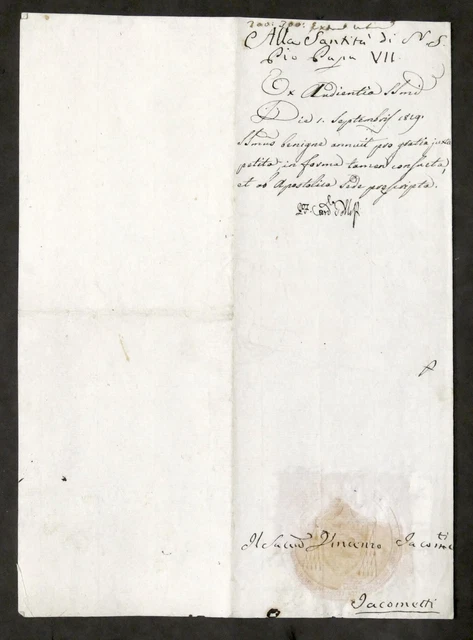 Alla Santità di N. S.
Pio Papa VII.
Ex Audientia SSmi
Die 1. Septembris 1819.
SSmus benigne annuit pro gratia juxta
petita in forma tamen consueta,
et ab Apostolica Sede præscripta.
Card.
Il Sacerd. Vincenzo Jacometti
Jacometti